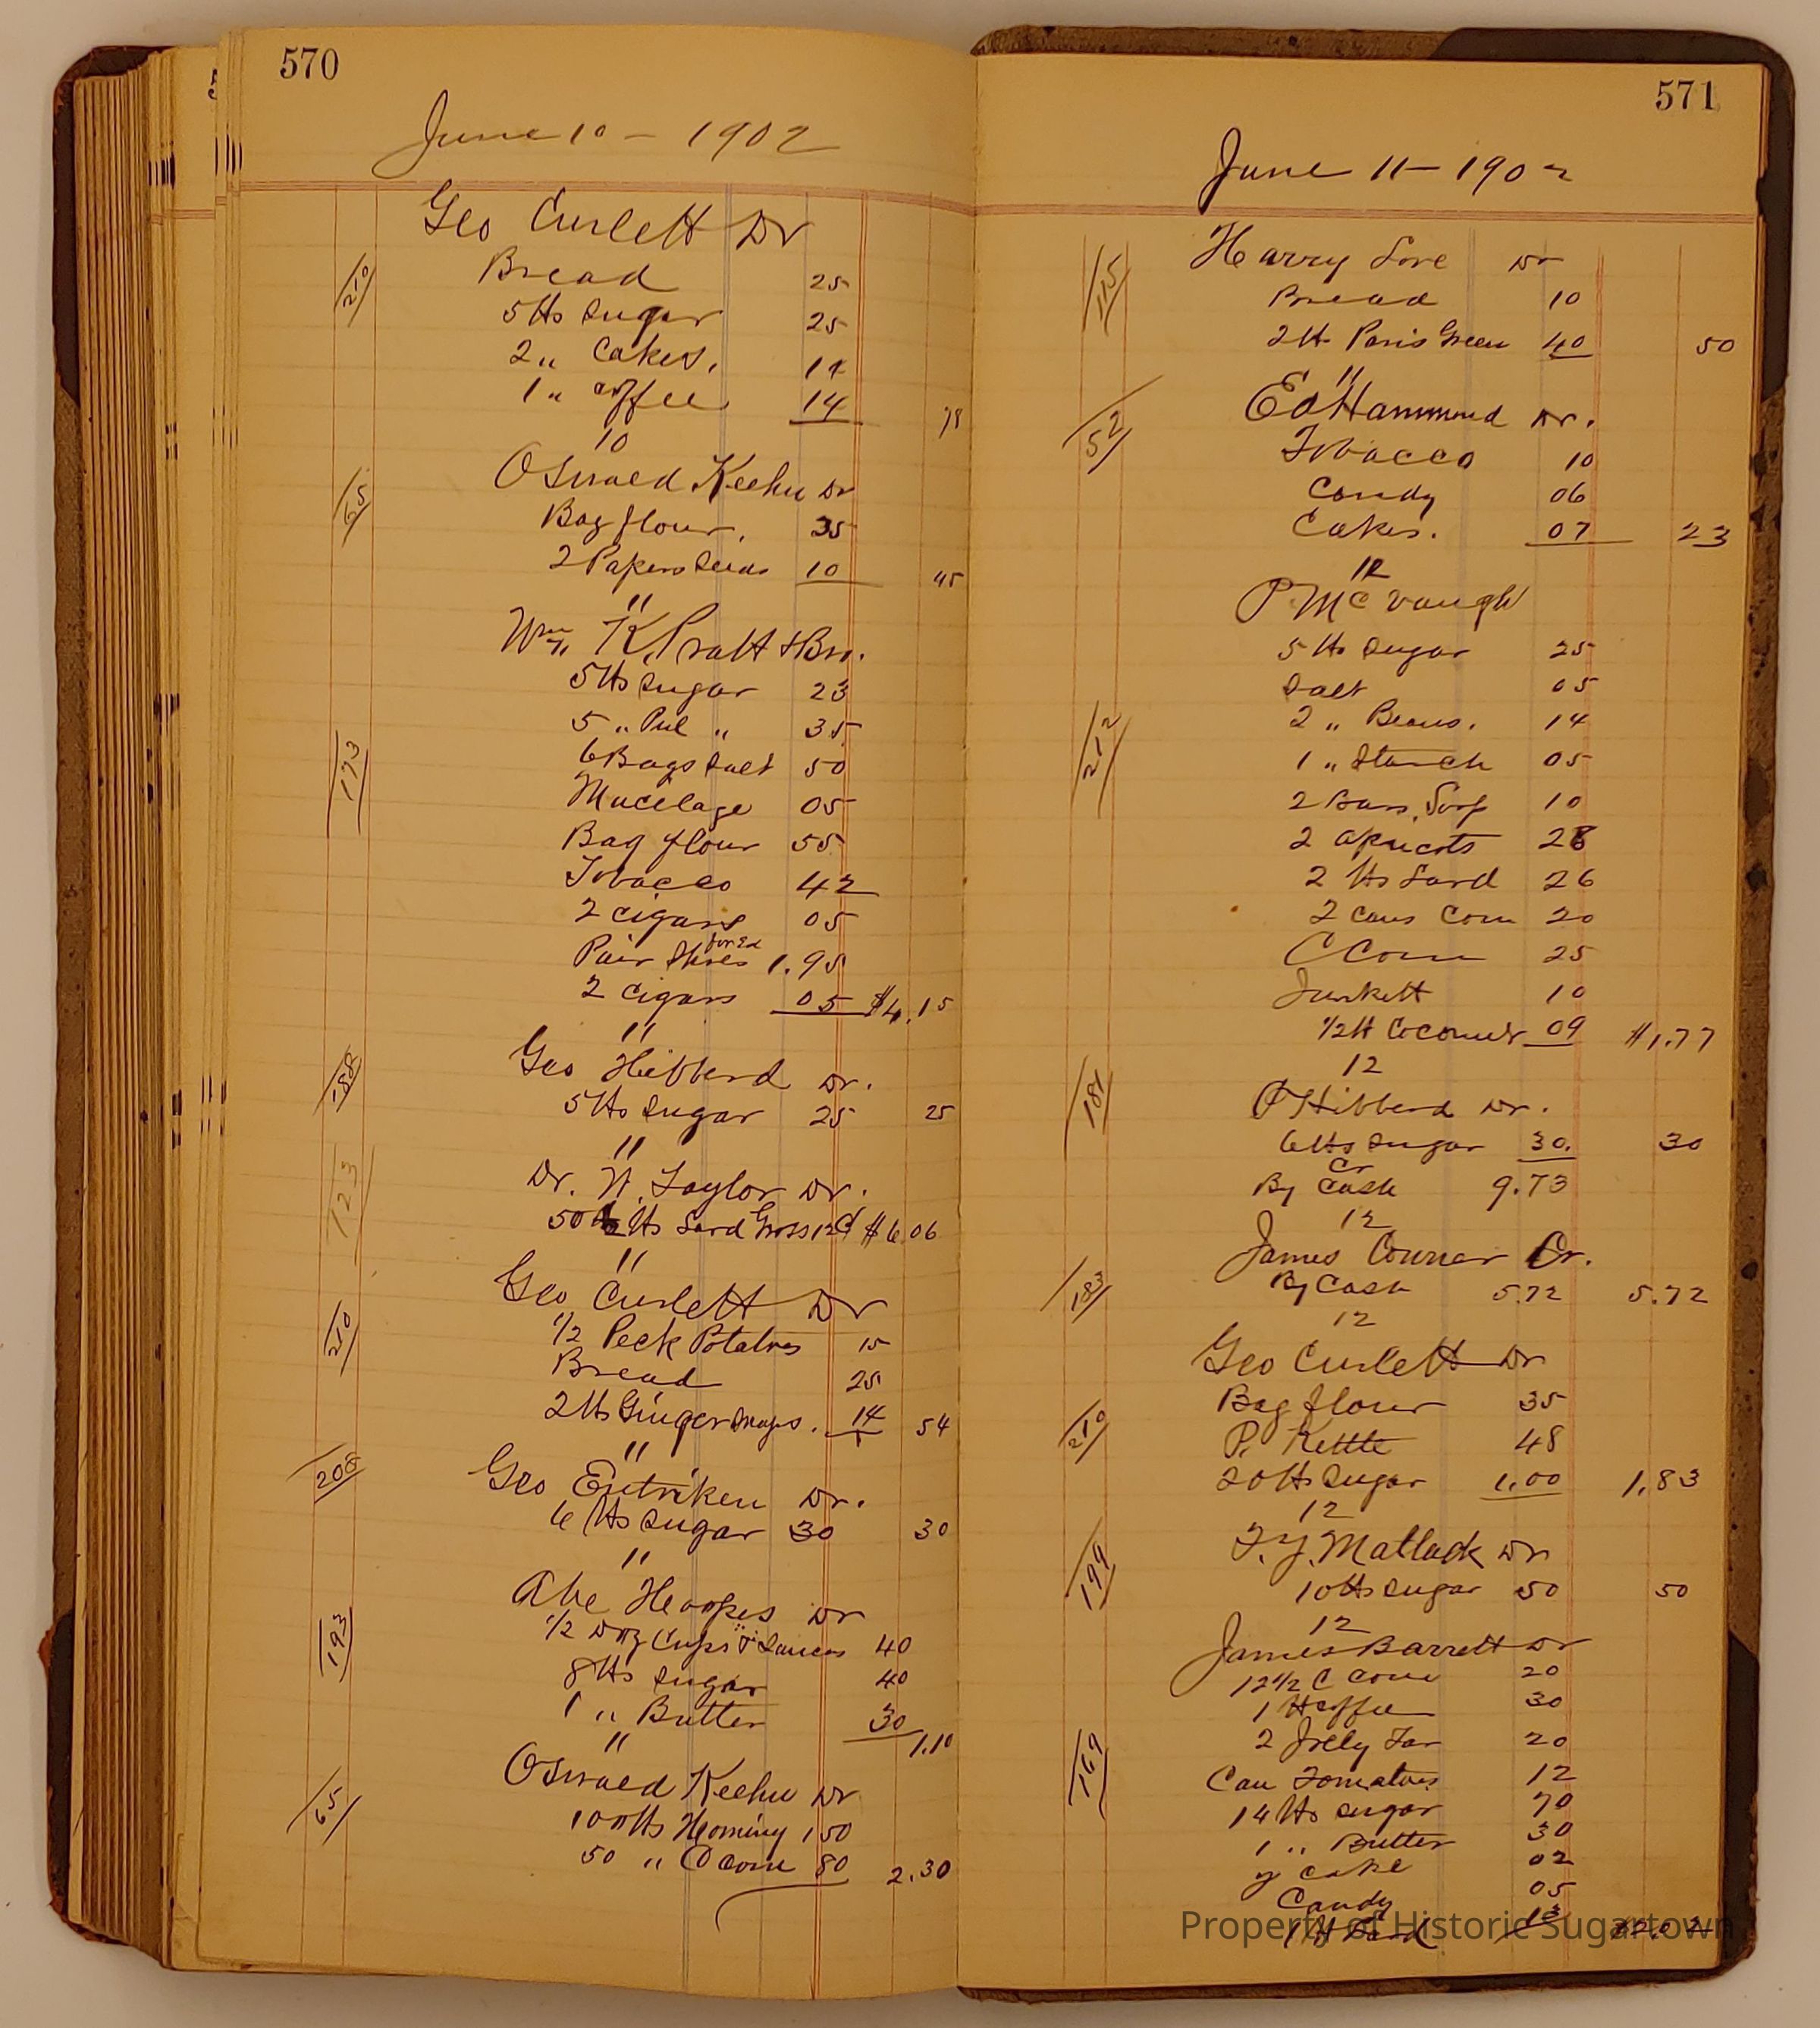 570
June 10 - 1902
Geo Curlett Dr
210
Bread 25
5 lbs Sugar 25
2 " Cakes. 14
1 " Coffee 14 78
10
Oswald Keehn Dr
65
Bag flour. 35
2 Papers Seeds 10 45
"
Wm K. Pratt + Bro.
5 lbs Sugar 23
5 " Pul " 35
173
6 Bags Salt 50
Mucilage 05
Bag flour 55
Tobacco 42
2 cigars 05
Pair Shoes for Ed 1.95
2 cigars 05 $4.15
"
Geo Hibberd Dr.
188
5 lbs Sugar 25 25
"
Dr. H. Taylor Dr.
123
50 1/2 lbs Lard Gross 12c $6.06
"
Geo Curlett Dr
210
1/2 Peck Potatoes 15
Bread 25
2 lbs Ginger Snaps. 14 54
"
208
Geo Entriken Dr.
6 lbs Sugar 30 30
"
Abe Hoopes Dr
193
1/2 Doz Cups & Sauces 40
8 lbs Sugar 40
1 " Butter 30 1.10
"
Oswald Keehn Dr
65
100 lbs Hominy 1 50
50 " C corn 80 2.30
571
June 11 - 1902
Harry Lore Dr
115
Bread 10
2 lb Paris Green 40 50
"
Ed Hammond Dr.
52
Tobacco 10
Candy 06
Cakes. 07 23
12
P McVaugh
5 lbs Sugar 25
Salt 05
212
2 " Beans. 14
1 " Starch 05
2 Bars Soap 10
2 apricots 28
2 lbs Lard 26
2 cans Corn 20
C Corn 25
Junkett 10
1/2 lb Cocoanut 09 $1.77
12
181
P Hibberd Dr.
6 lbs Sugar 30. 30
Cr
By Cash 9.73
12
James Conner Cr.
183
By Cash 5.72 5.72
12
Geo Curlett Dr
Bag flour 35
210
P. Kettle 48
20 lbs Sugar 1.00 1.83
12
T. J. Matlack Dr
199
10 lbs Sugar 50 50
12
James Barrett Dr
12 1/2 C Corn 20
1 lb Coffee 30
2 Jelly Jar 20
169
Can Tomatoes 12
14 lbs Sugar 70
1 " Butter 30
y cake 02
Candy 05
1 lb Lard 13 $2.02
Property of Historic Sugartown